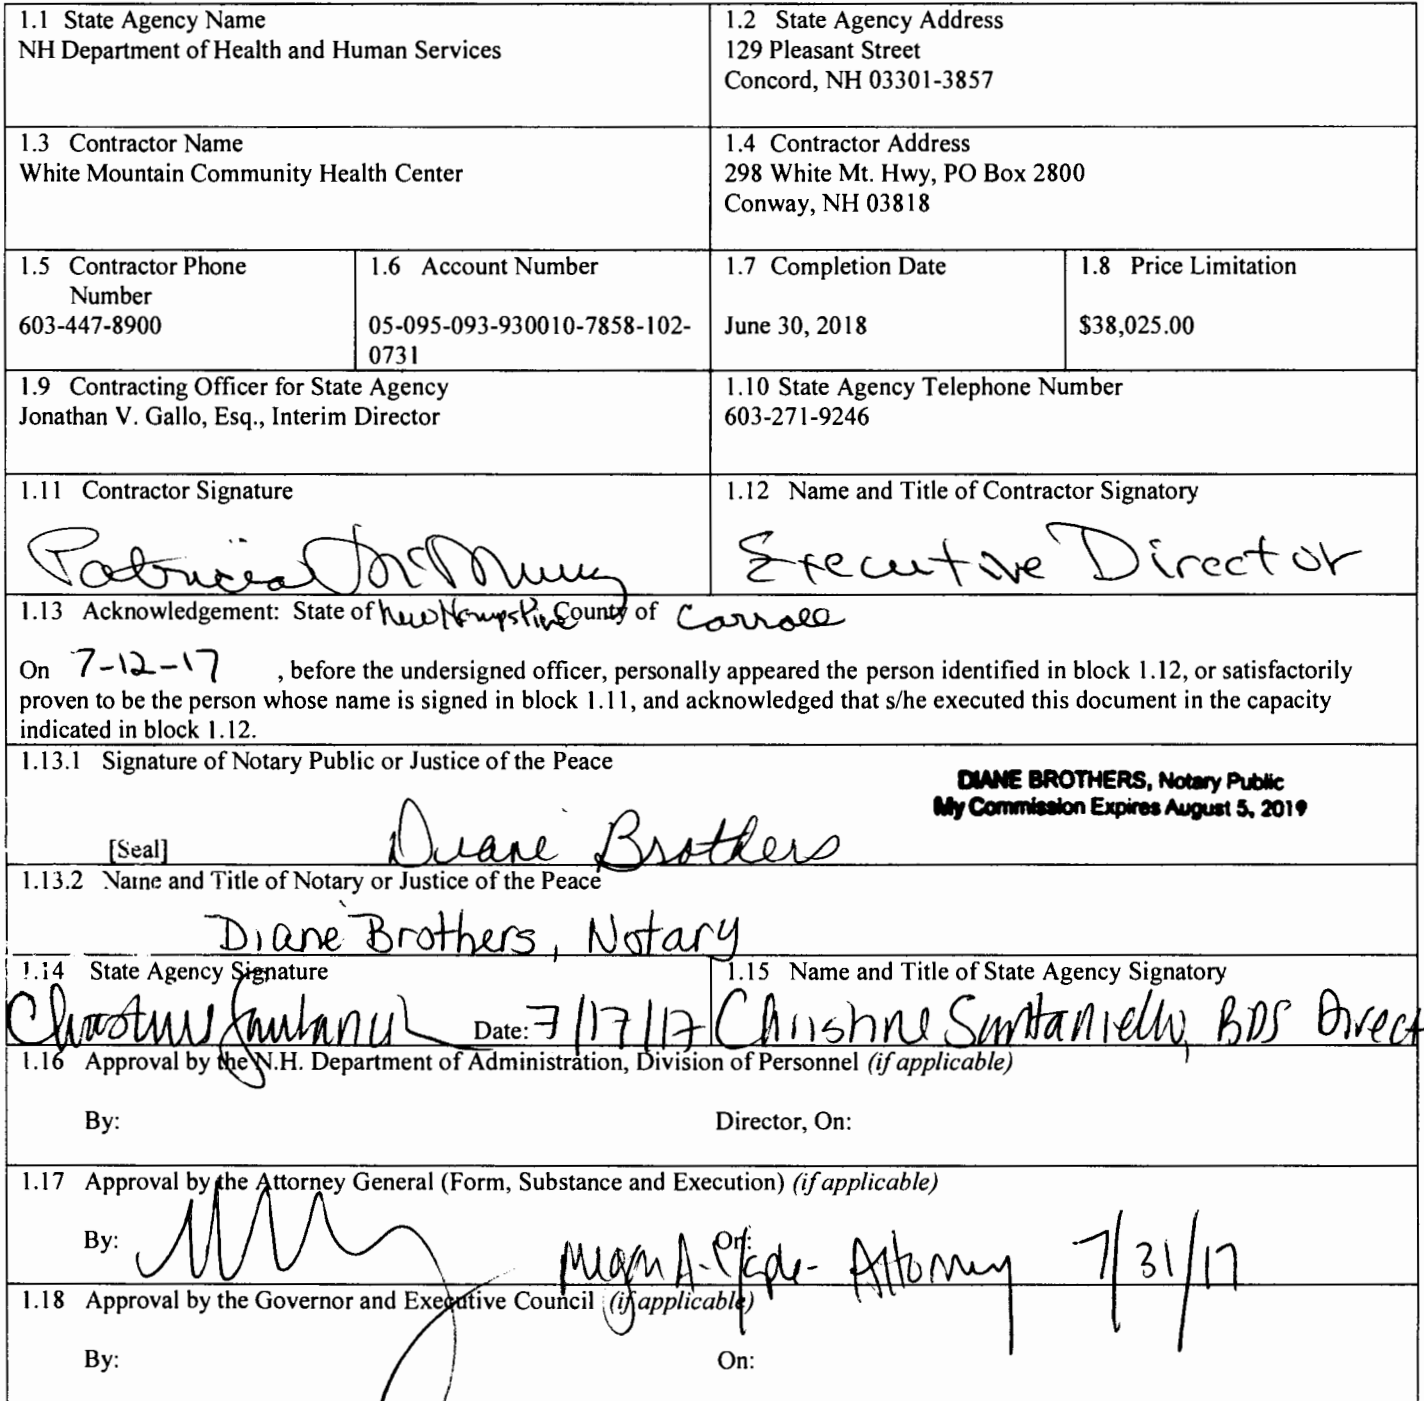 1.1 State Agency Name
NH Department of Health and Human Services
1.2 State Agency Address
129 Pleasant Street
Concord, NH 03301-3857
1.3 Contractor Name
White Mountain Community Health Center
1.4 Contractor Address
298 White Mt. Hwy, PO Box 2800
Conway, NH 03818
1.5 Contractor Phone
Number
603-447-8900
1.6 Account Number
05-095-093-930010-7858-102-
0731
1.7 Completion Date
June 30, 2018
1.8 Price Limitation
$38,025.00
1.9 Contracting Officer for State Agency
Jonathan V. Gallo, Esq., Interim Director
1.10 State Agency Telephone Number
603-271-9246
1.11 Contractor Signature
Patricia
1.12 Name and Title of Contractor Signatory
Executive Director
1.13 Acknowledgement: State of New Hampshire County of Carroll
On 7-12-17 , before the undersigned officer, personally appeared the person identified in block 1.12, or satisfactorily
proven to be the person whose name is signed in block 1.11, and acknowledged that s/he executed this document in the capacity
indicated in block 1.12.
1.13.1 Signature of Notary Public or Justice of the Peace
DIANE BROTHERS, Notary Public
My Commission Expires August 5, 2019
[Seal] Diane Brothers
1.13.2 Name and Title of Notary or Justice of the Peace
Diane Brothers, Notary
1.14 State Agency Signature
Date: 7/17/17
1.15 Name and Title of State Agency Signatory
Christine Santaniello, BDS Direct
1.16 Approval by the N.H. Department of Administration, Division of Personnel (if applicable)
By: Director, On:
1.17 Approval by the Attorney General (Form, Substance and Execution) (if applicable)
By: On: Attorney 7/31/17
1.18 Approval by the Governor and Executive Council (if applicable)
By: On: